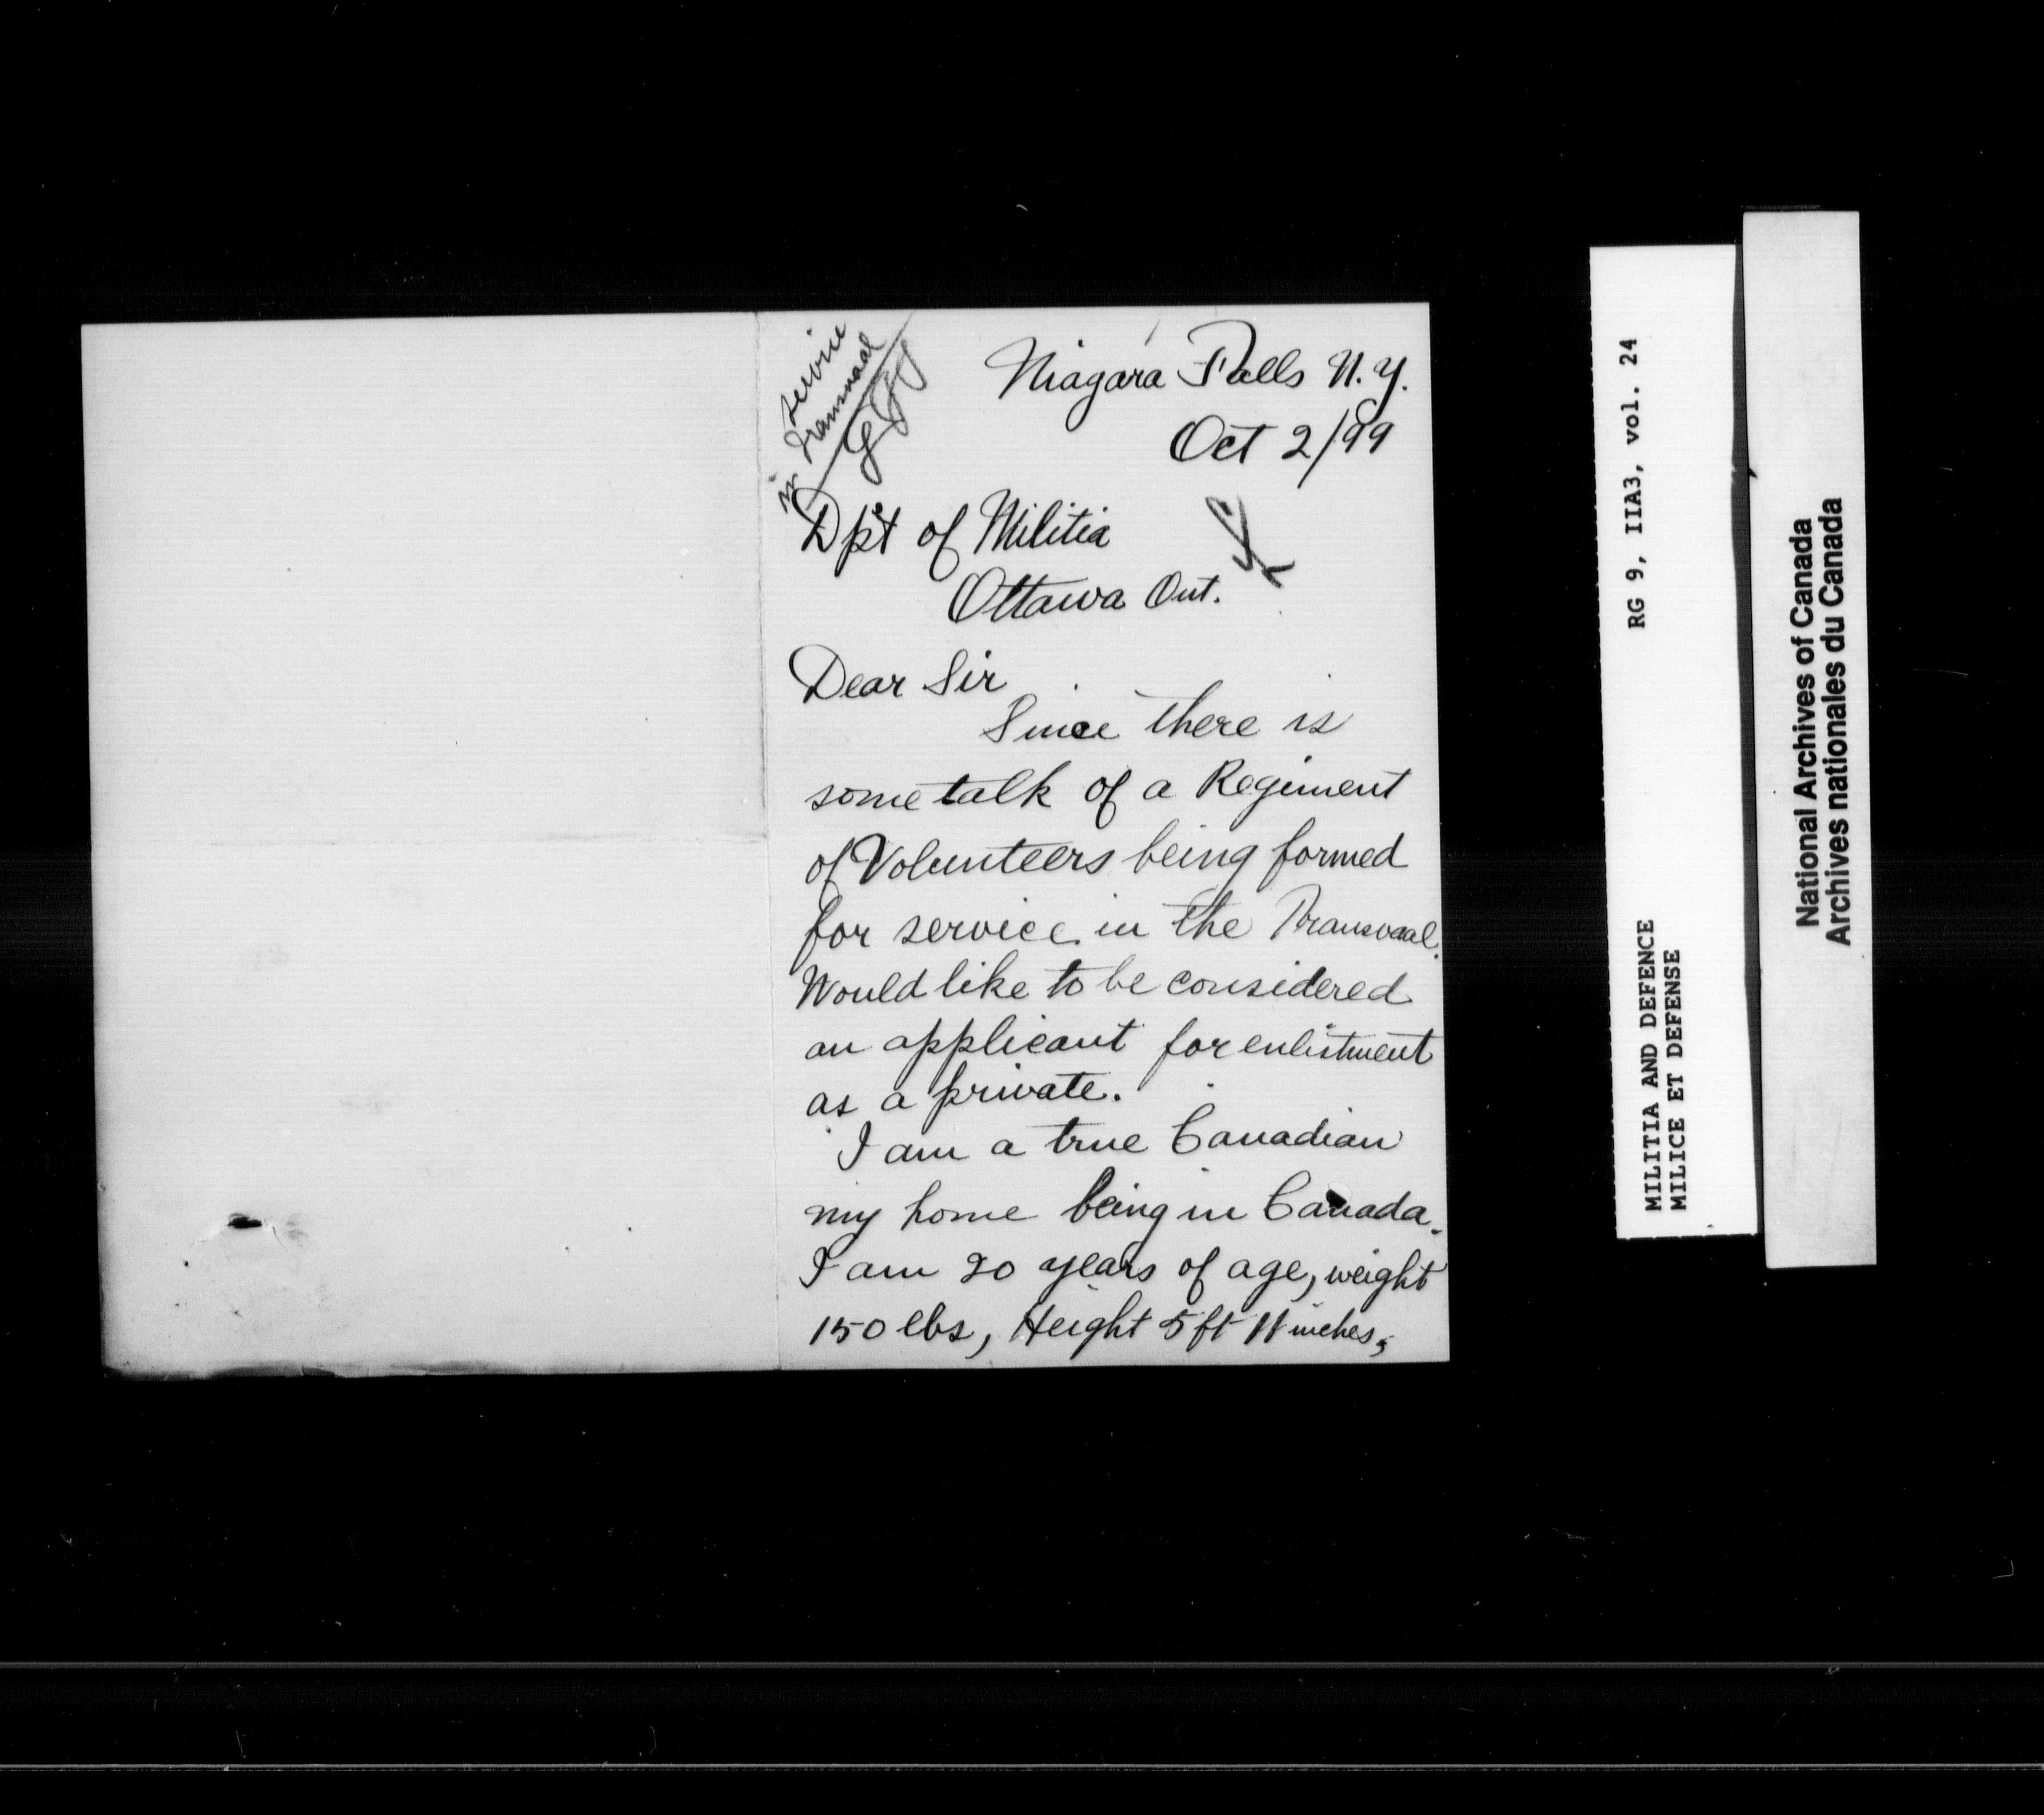 service
in Transvaal
Niagara Falls N.Y.
Oct 2/99
Dp't of Militia
Ottawa Ont.
Dear Sir
Since there is
some talk of a Regiment
of Volunteers being formed
for service in the Transvaal.
Would like to be considered
an applicant for enlistment
as a private.
I am a true Canadian
my home being in Canada.
I am 20 years of age, weight
150 lbs, Height 5 ft 11 inches,
RG 9, IIA3, vol. 24
MILITIA AND DEFENCE
MILICE ET DEFENSE
National Archives of Canada
Archives nationales du Canada